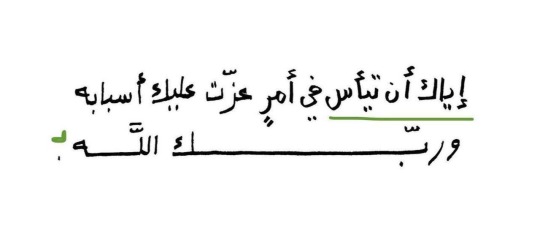 إياك أن تيأس في أمرٍ عزّت عليك أسبابه
وربّك اللَّه